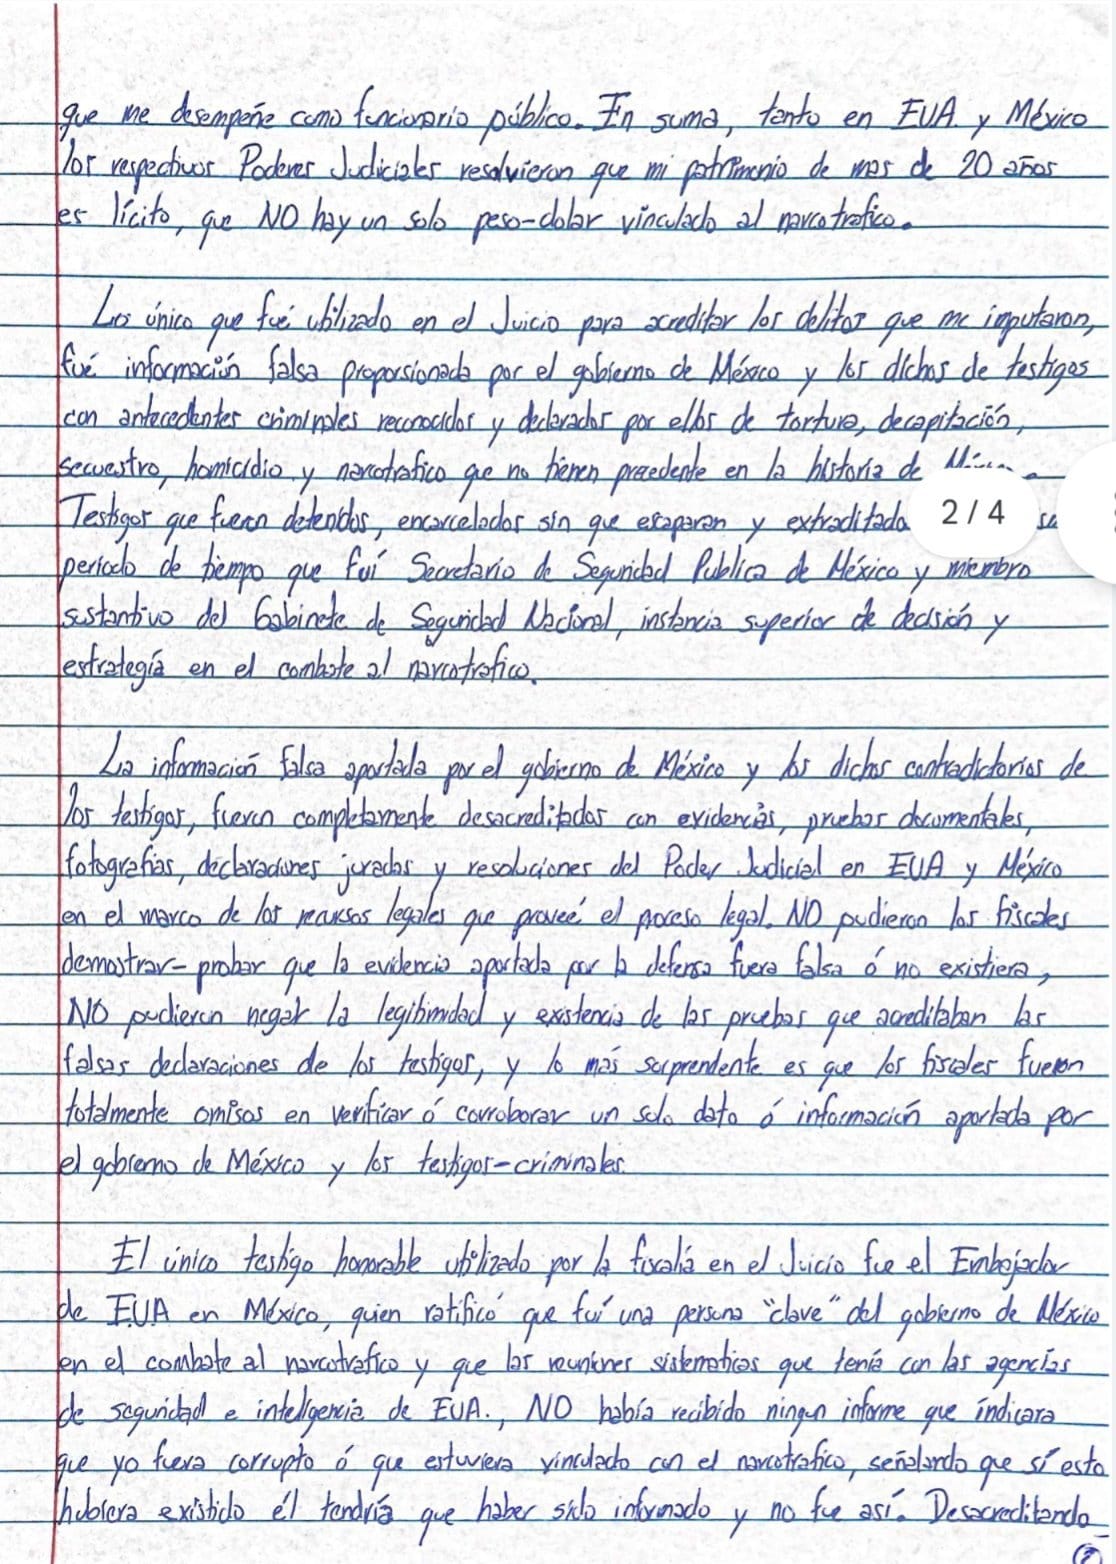 que me desempeñe como funcionario público. En suma, tanto en EUA. y México
los respectivos Poderes Judiciales resolvieron que mi patrimonio de mas de 20 años
es lícito, que NO hay un solo peso-dolar vinculado al narcotrafico.
Lo único que fué utilizado en el Juicio para acreditar los delitos que me imputaron,
fué información falsa proporsionada por el gobierno de México y los dichos de testigos
con antecedentes criminales reconocidos y declarados por ellos de tortura, decapitación,
secuestro, homicidio y narcotrafico que no tienen precedente en la historia de
Testigos que fueron detenidos, encarcelados sin que escaparan y extraditado
2/4
periodo de tiempo que fuí Secretario de Seguridad Publica de México y miembro
sustantivo del Gabinete de Seguridad Nacional, instancia superior de decisión y
estrategía en el combate al narcotrafico.
La información falsa aportada por el gobierno de México y los dichos contradictorios de
los testigos, fueron completamente desacreditados con evidencias, pruebas documentales,
fotografías, declaraciones juradas y resoluciones del Poder Judicial en EUA y México
en el marco de los recursos legales que proveé el proceso legal. NO pudieron los fiscales
demostrar-probar que la evidencia aportada por la defensa fuera falsa ó no existiera,
NO pudieron negar la legitimidad y existencia de las pruebas que acreditaban las
falsas declaraciones de los testigos, y lo más sorprendente es que los fiscales fueron
totalmente omisos en verificar ó corroborar un solo dato ó información aportada por
el gobierno de México y los testigos-criminales.
El único testigo honorable utilizado por la fiscalía en el Juicio fue el Embajador
de EUA en México, quien ratificó que fuí una persona "clave" del gobierno de México
en el combate al narcotrafico y que las reuniones sistematicas que tenía con las agencias
de seguridad e inteligencia de EUA., NO había recibido ningun informe que indicara
que yo fuera corrupto ó que estuviera vinculado con el narcotrafico, señalando que sí esto
hubiera existido él tendría que haber sido informado y no fue así. Desacreditando
2